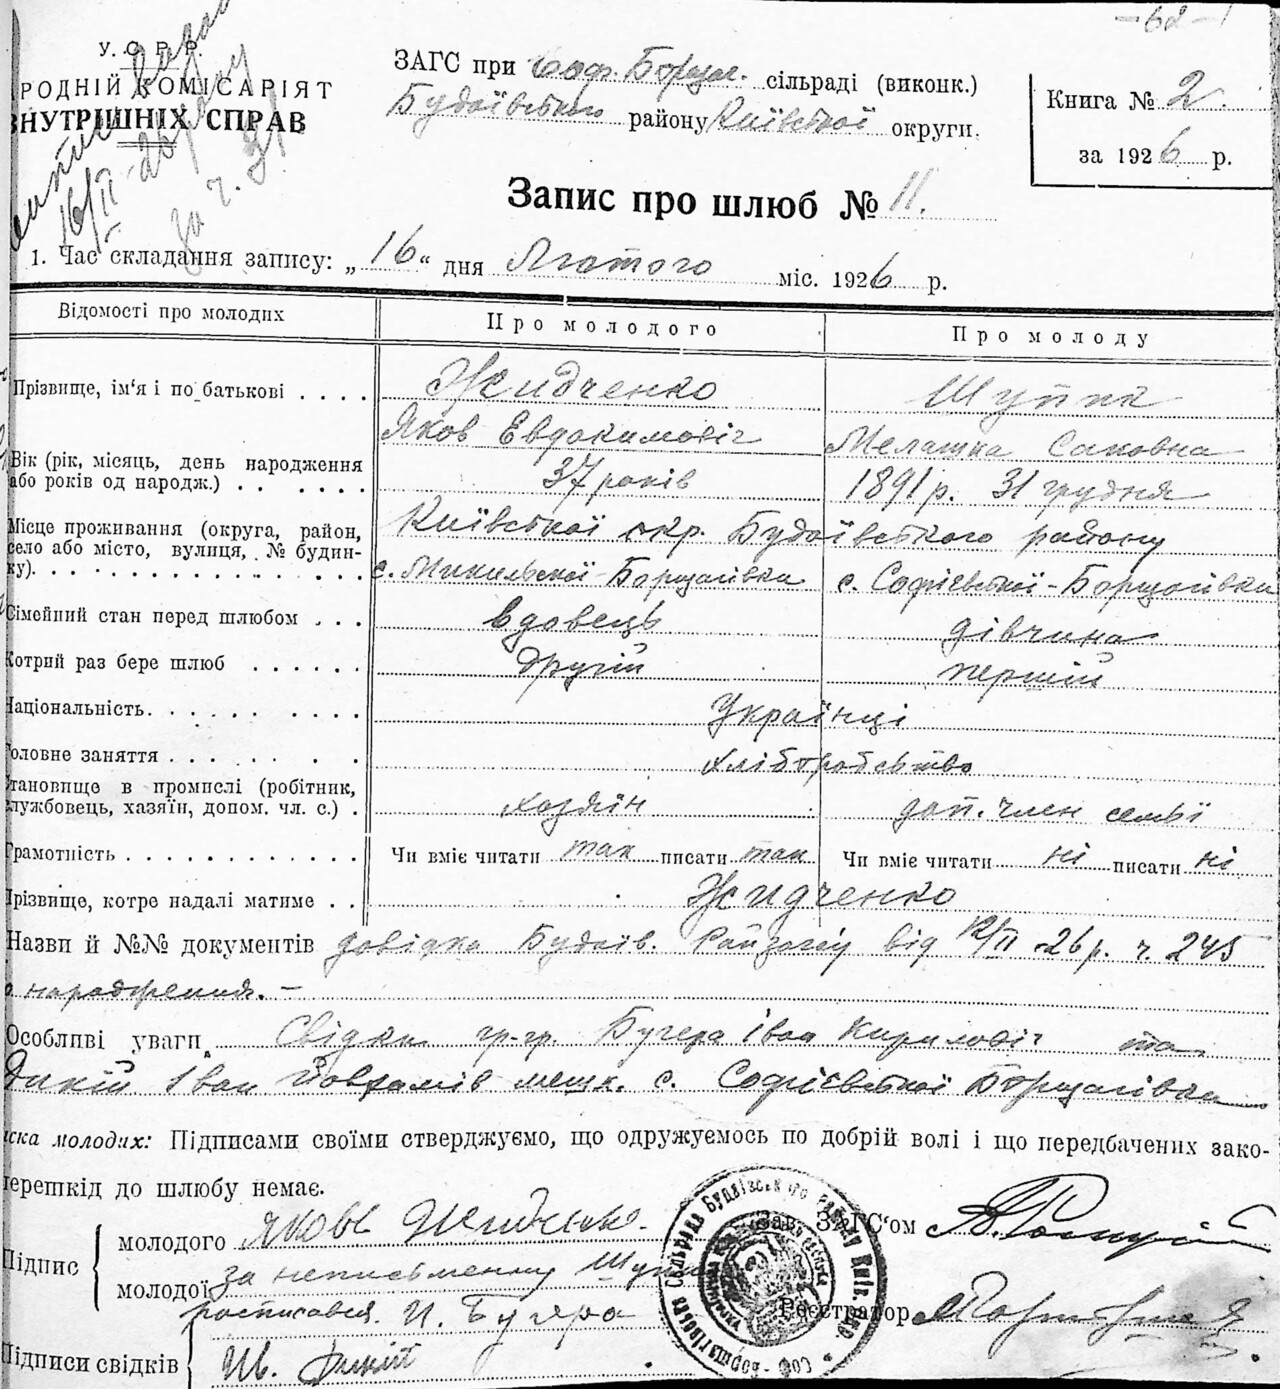 -62-
У. С. Р. Р.
РОДНІЙ КОМІСАРІЯТ
ВНУТРІШНІХ СПРАВ
16/II-26 р.
за ч. 31
ЗАГС при Соф. Борщаг. сільраді (виконк.)
Будаївського району Київської округи.
Книга № 2.
за 1926 р.
Запис про шлюб № 11.
1. Час складання запису: „16“ дня Лютого міс. 1926 р.
Відомості про молодих Про молодого Про молоду
Прізвище, ім‘я і по батькові . . . . Жидченко Шупик
Яков Евдокимовіч Мелашка Саковна
Вік (рік, місяць, день народження
або років од народж.) . . . . . . 37 років 1891 р. 31 грудня
Місце проживання (округа, район, Київської окр. Будаївського району
село або місто, вулиця, № будин-
ку). с. Микильської-Борщагівка с. Софієвської-Борщагівка
Сімейний стан перед шлюбом . . . вдовець дівчина
Котрий раз бере шлюб . . . . . . другій першій
Національність. Українці
Головне заняття хліборобство
Становище в промислі (робітник,
службовець, хазяїн, допом. чл. с.) . хозяін доп. член семьї
Грамотність Чи вміє читати так писати так Чи вміє читати ні писати ні
Прізвище, котре надалі матиме . . Жидченко
Назви й №№ документів довідка Будаїв. Райзагсу від 12/II-26 р. ч. 245
о народження. –
Особливі уваги Свідки гр-гр. Бугера Іван Кирилович та
Дикій Іван мешк. с. Софієвської Борщагівки
ска молодих: Підписами своїми стверджуємо, що одружуємось по добрій волі і що передбачених зако-
перешкід до шлюбу немає.
Підпис молодого Яковъ Жидченко.
молодої за неписьменну Шупик
росписався. И. Бугера
Підписи свідків Ив. Дикий
Зав. ЗАГС‘ом
Реєстратор